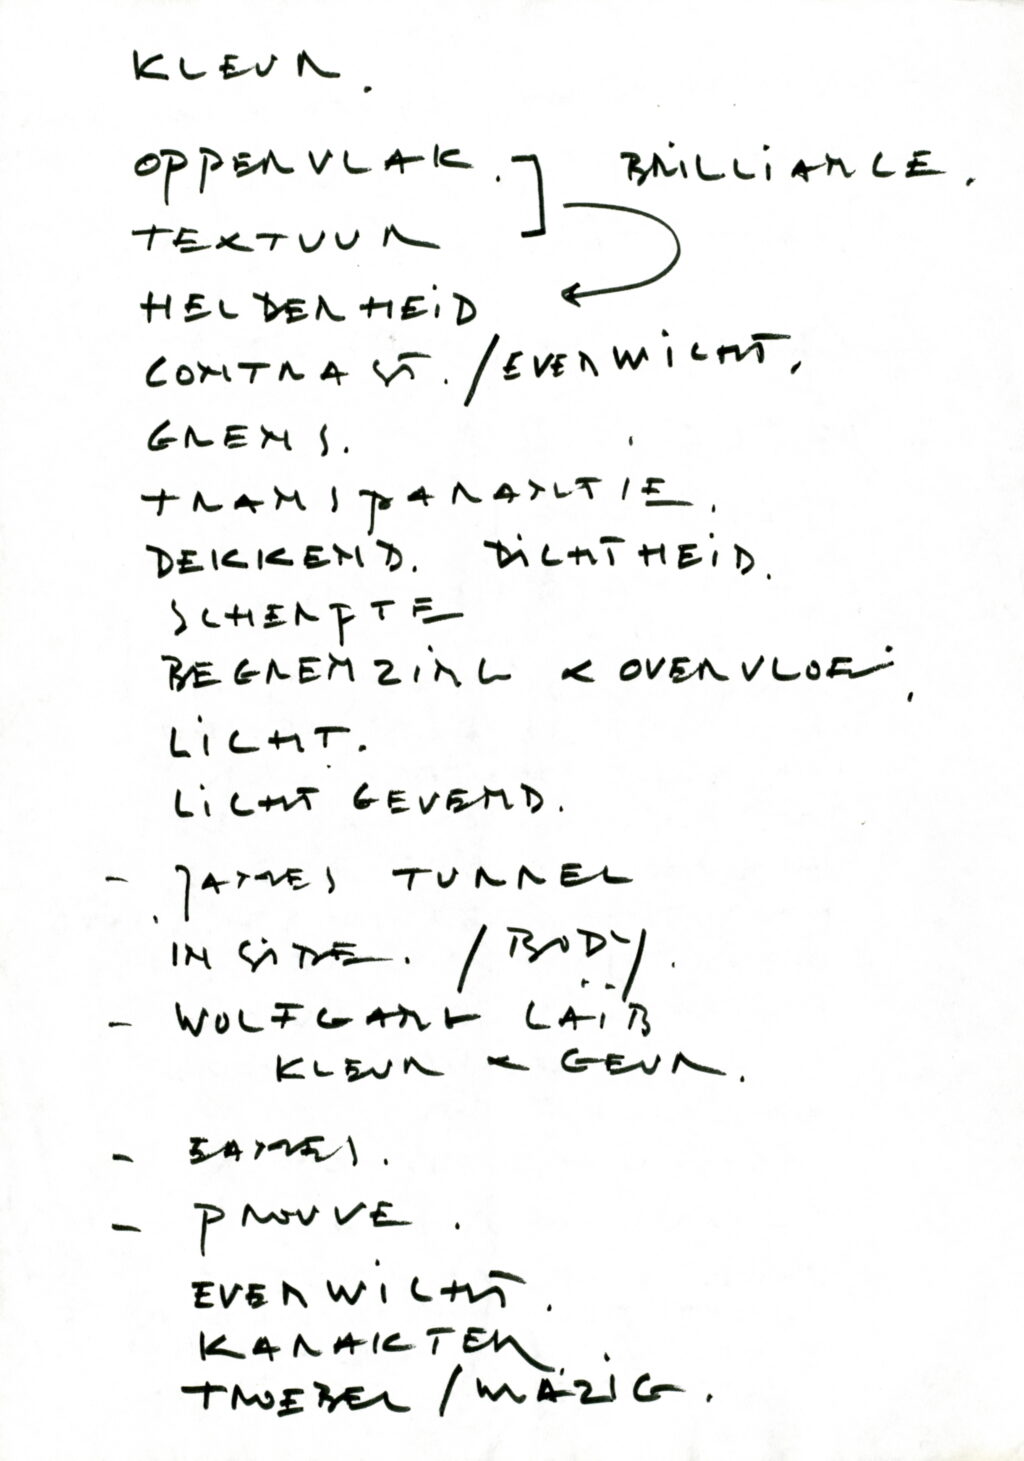 KLEUR.
OPPERVLAK. ] BRILLIANCE.
TEXTUUR
HELDERHEID
CONTRAST. / EVENWICHT.
GRENS.
TRANSPARANTIE.
DEKKEND. DICHTHEID.
SCHERPTE
BEGRENZING & OVERVLOEI.
LICHT.
LICHT GEVEND.
- JAMES TURREL
INSIDE. / BODY.
- WOLFGANG LAÏB
KLEUR & GEUR.
- EAMES.
- PROUVE.
EVENWICHT.
KARAKTER
TROEBEL /